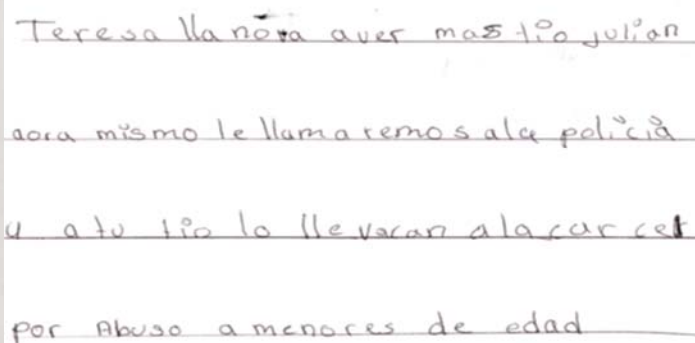 Teresa lla nora aver mas tio julian
aora mismo le llamaremos ala policia
y a tu tio lo llevaran ala carcel
por Abuso a menores de edad